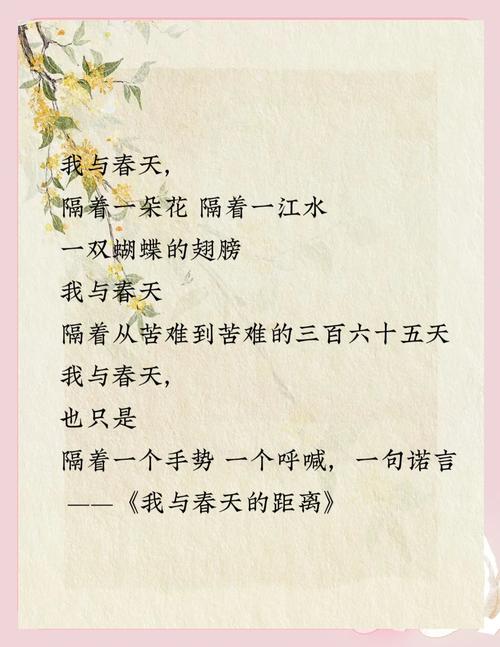 我与春天，
隔着一朵花 隔着一江水
一双蝴蝶的翅膀
我与春天
隔着从苦难到苦难的三百六十五天
我与春天，
也只是
隔着一个手势 一个呼喊，一句诺言
——《我与春天的距离》